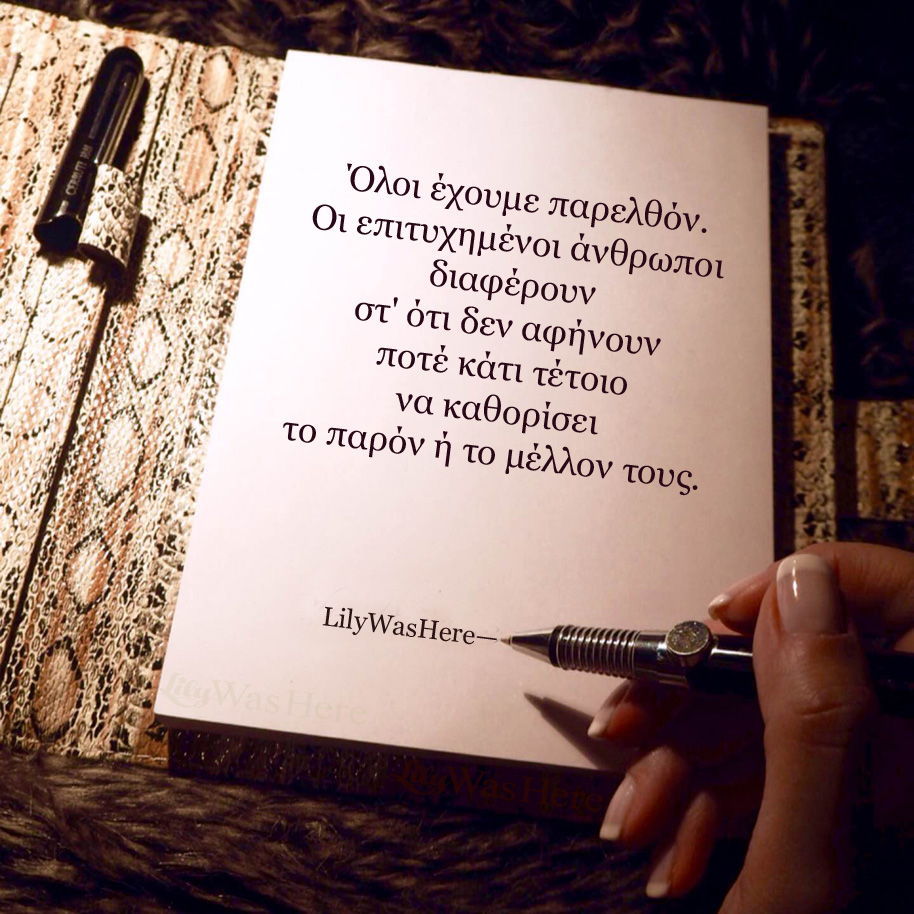 Όλοι έχουμε παρελθόν.
Οι επιτυχημένοι άνθρωποι
διαφέρουν
στ' ότι δεν αφήνουν
ποτέ κάτι τέτοιο
να καθορίσει
το παρόν ή το μέλλον τους.
LilyWasHere—
LilyWasHere
LilyWasHere
CERRUTI 1881